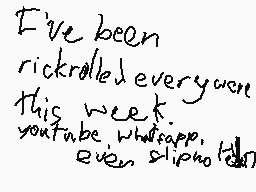 I've been
rickrolled everywere
this week.
youtube, whatsapp,
even slipno